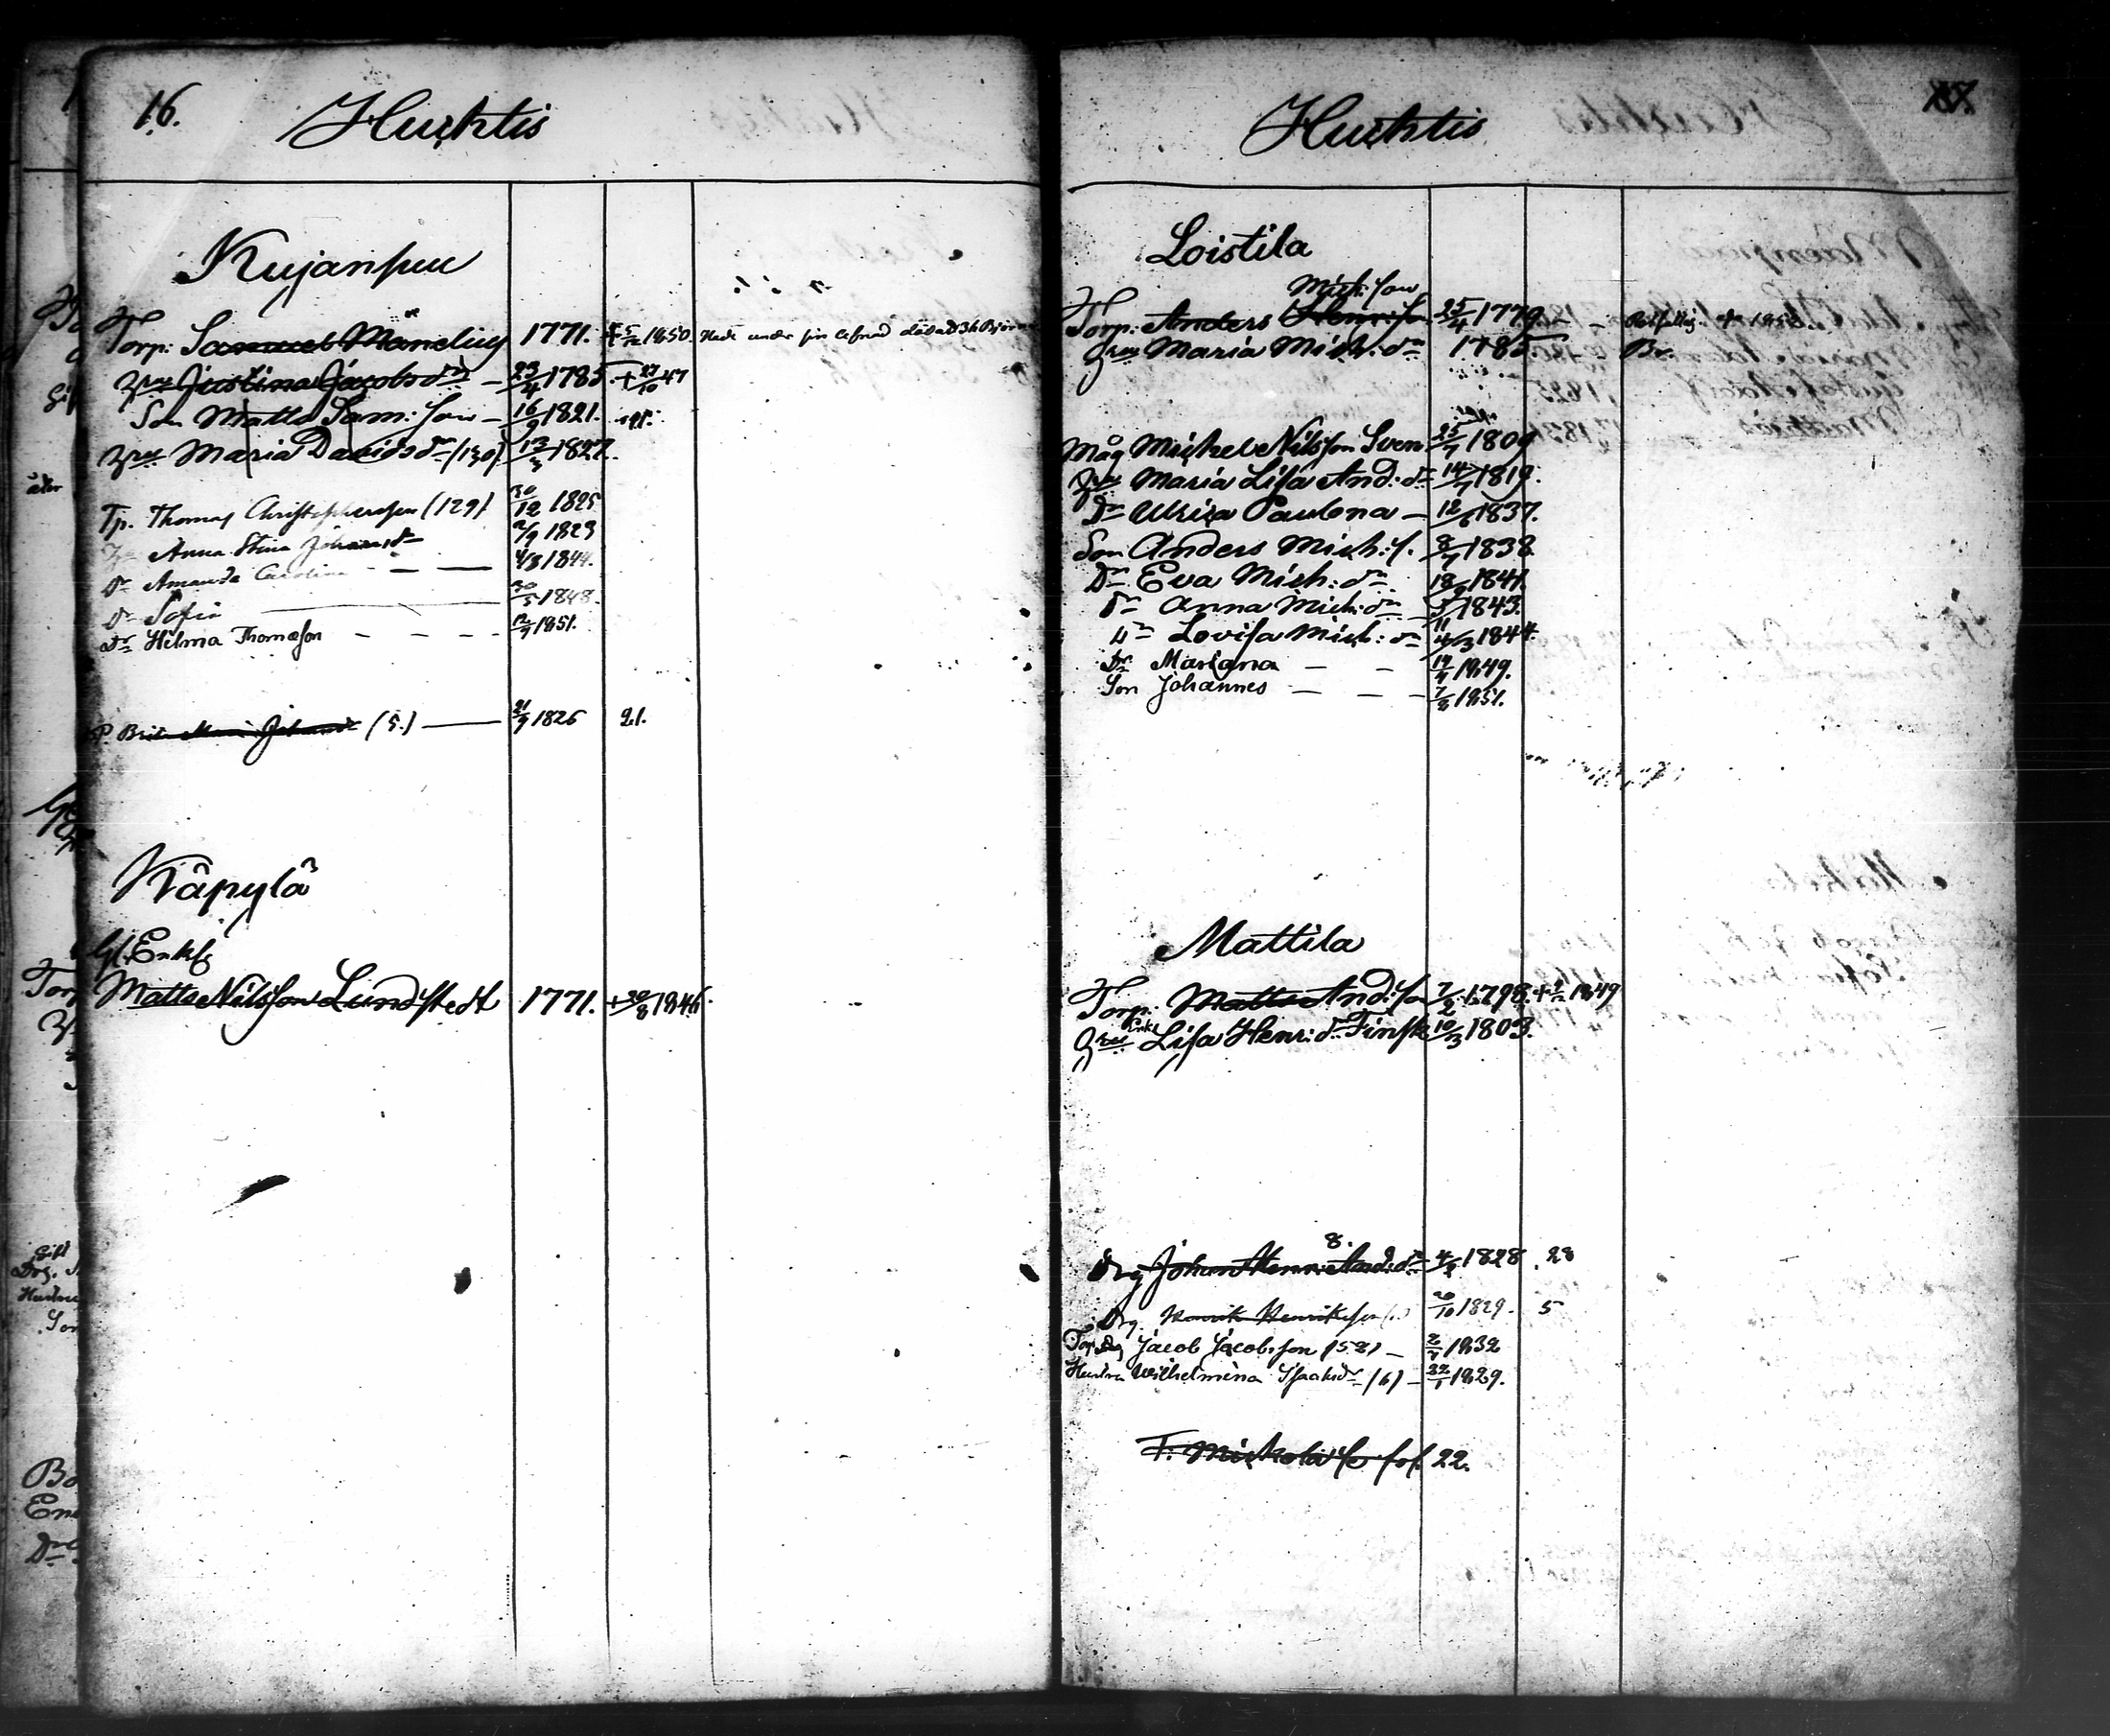 16.
Huhtis
Kujanpuu
Torp: Samuel Mandelin 1771. + 5/2 1850. Hade under sin lefnad dödad 36 Björnar
Hru Justina Jacobs dr – 23/4 1785. + 27/10 47
Son Matts Sam: son – 16/9 1821.
Hru Maria Davids dr (130) 13/3 1827.
Tp. Thomas Christophersson (129) 30/12 1825
Hu Anna Stina Johans dr 2/9 1823
Dr Amanda Carolina – – 4/3 1844.
Dr Sofia 30/5 1848.
Dr Hilma Thomæson – – – – 12/9 1851.
P. Brita Maria Johans dr (5.) 21/9 1826 21.
Käpylä
Gl. Enkl
Matts Nilsson Lundstedt 1771. + 30/8 1846.
Huhtis
Loistila
Mich: son
Torp: Anders Henr: son 25/4 1779
Hru Maria Mich: dr 1785.
Måg Michel Nilsson Sven 25/7 1809
Hru Maria Lisa And: dr 14/7 1819.
Dr Ulrica Paulona – 12/6 1837.
Son Anders Mich: s. 8/7 1838.
Dr Eva Mich: dr 18/9 1841.
Dr Anna Mich: dr 5/11 1843.
Dr Lovisa Mich: dr 4/3 1844.
Dr Mariana – – 14/4 1849.
Son Johannes – – – 7/8 1851.
Mattila
Torp: Matts And: son 7/2 1798. 1849
Enk
Hru Lisa Henr: dr Finsk 10/3 1803.
8.
Drg Johan Henr: And: 4/2 1828 28
Drg. Henrik Henriksson 20/10 1829. 5
Torp Drg Jacob Jacobsson (58) – 2/7 1832
Hustru Wilhelmina Isaaksdr (6) – 22/1 1829.
T. Miskola se fol. 22.